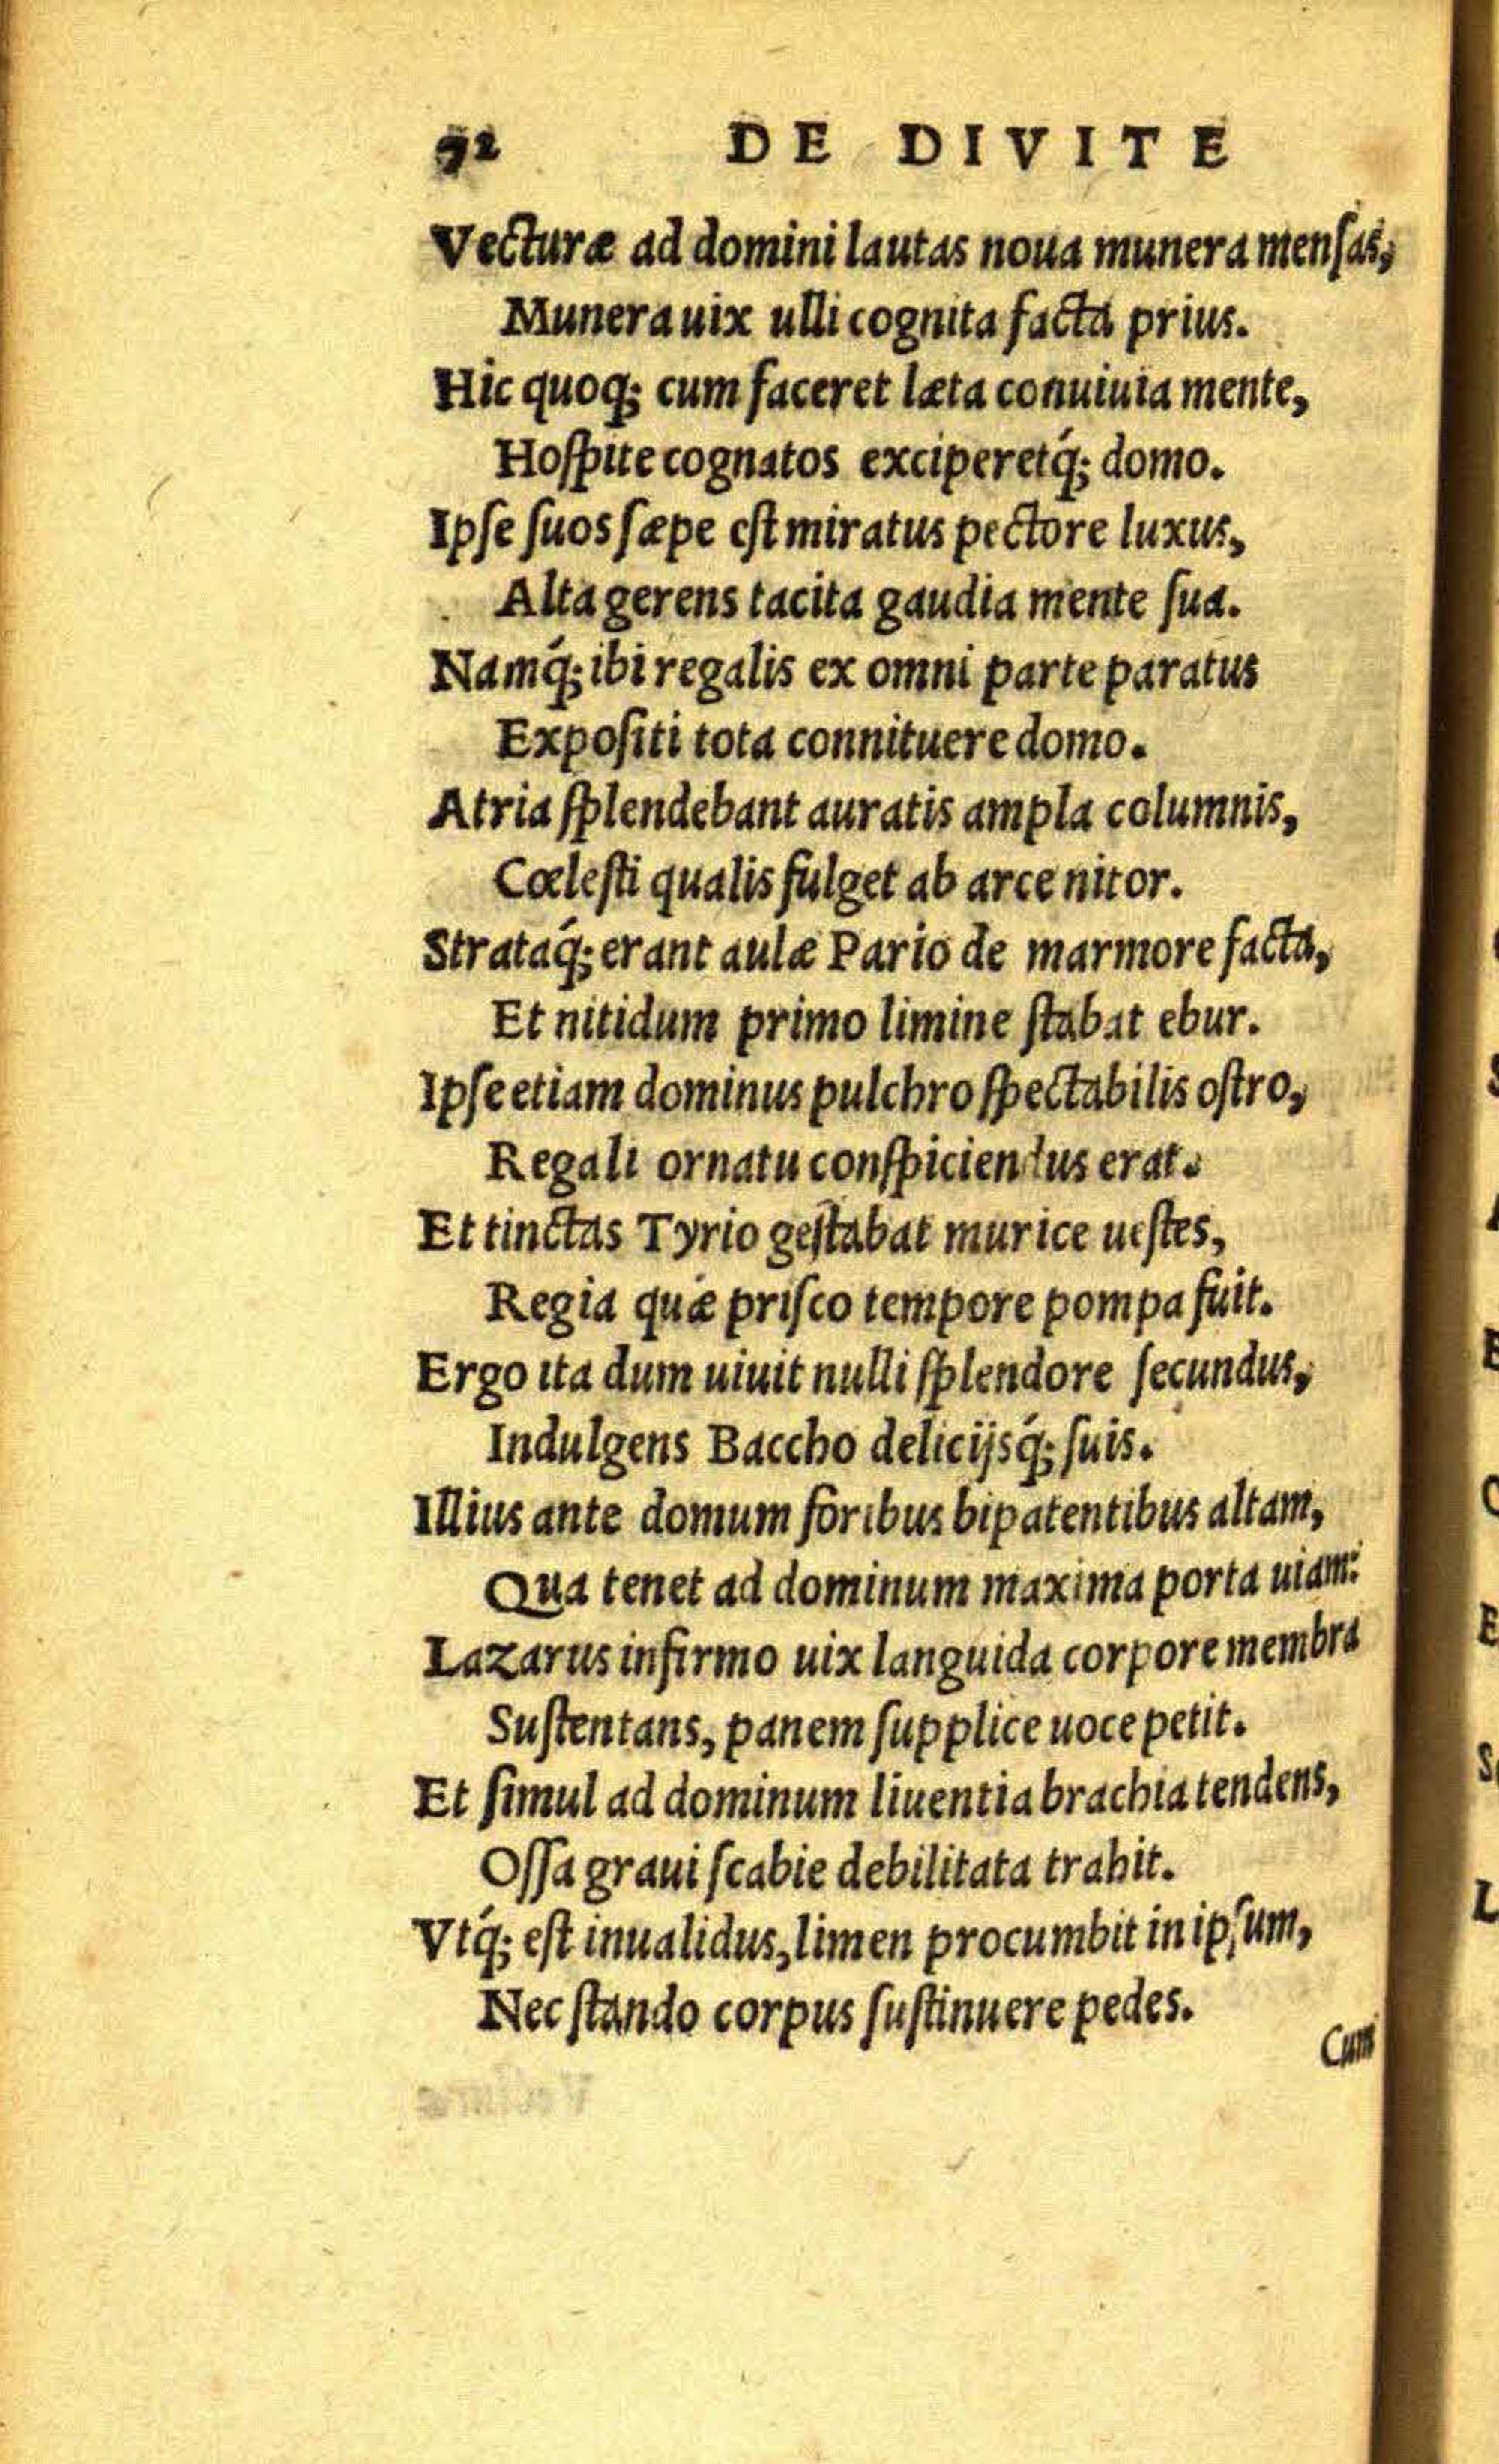 92 DE DIVITE
Vecturæ ad domini lautas noua munera menſas,
Munera uix ulli cognita facta prius.
Hic quoq; cum faceret læta conuiuia mente,
Hoſpite cognatos exciperetq́; domo.
Ipſe ſuos ſæpe eſt miratus pectore luxus,
Alta gerens tacita gaudia mente ſua.
Namq́; ibi regalis ex omni parte paratus
Expoſiti tota connituere domo.
Atria ſplendebant auratis ampla columnis,
Cœleſti qualis fulget ab arce nitor.
Strataq́; erant aulæ Pario de marmore facta,
Et nitidum primo limine ſtabat ebur.
Ipſe etiam dominus pulchro ſpectabilis oſtro,
Regali ornatu conſpiciendus erat.
Et tinctas Tyrio geſtabat murice ueſtes,
Regia quæ priſco tempore pompa fuit.
Ergo ita dum uiuit nulli ſplendore ſecundus,
Indulgens Baccho delicijsq́; ſuis.
Illius ante domum foribus bipatentibus altam,
Qua tenet ad dominum maxima porta uiam:
Lazarus infirmo uix languida corpore membra
Suſtentans, panem ſupplice uoce petit.
Et ſimul ad dominum liuentia brachia tendens,
Oſſa graui ſcabie debilitata trahit.
Vtq́; eſt inualidus, limen procumbit in ipſum,
Nec ſtando corpus ſuſtinuere pedes.
Cum